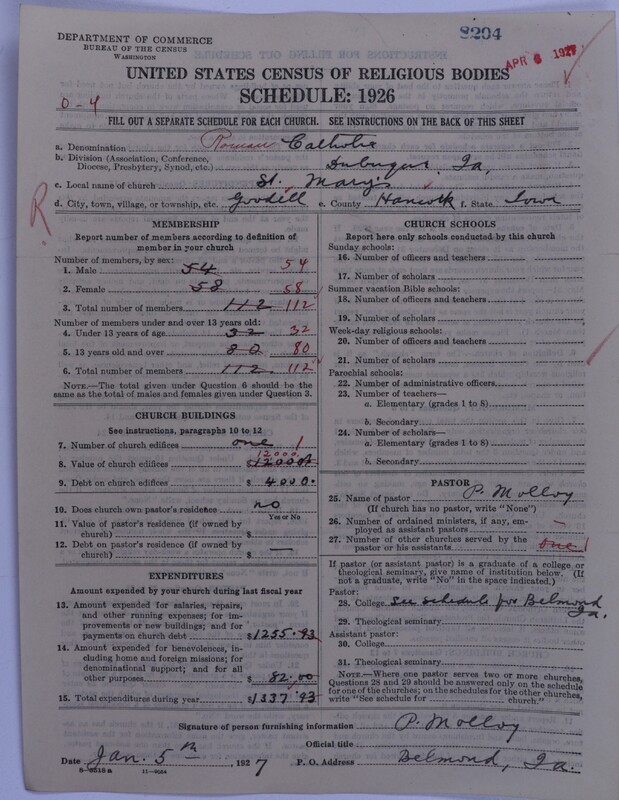 DEPARTMENT OF COMMERCE
BUREAU OF THE CENSUS
WASHINGTON
8204
APR 6 1927
UNITED STATES CENSUS OF RELIGIOUS BODIES
SCHEDULE: 1926
0-4
FILL OUT A SEPARATE SCHEDULE FOR EACH CHURCH. SEE INSTRUCTIONS ON THE BACK OF THIS SHEET
a. Denomination Roman Catholic
b. Division (Association, Conference,
Diocese, Presbytery, Synod, etc.) Dubuque, Ia,
c. Local name of church St. Mary's
d. City, town, village, or township, etc. Goodell e. County Hancock f. State Iowa
R
MEMBERSHIP
Report number of members according to definition of
member in your church
Number of members, by sex:
1. Male 54 54
2. Female 58 58
3. Total number of members 112 112
Number of members under and over 13 years old:
4. Under 13 years of age 32 32
5. 13 years old and over 80 80
6. Total number of members 112 112
NOTE.—The total given under Question 6 should be
same as the total of males and females given under Question 3.
CHURCH BUILDINGS
See instructions, paragraphs 10 to 12
7. Number of church edifices one 1
12000
8. Value of church edifices $12000
9. Debt on church edifices $ 4000.
10. Does church own pastor's residence no
Yes or No
11. Value of pastor's residence (if owned by
church) $
12. Debt on pastor's residence (if owned by
church) $ —
EXPENDITURES
Amount expended by your church during last fiscal year
13. Amount expended for salaries, repairs,
and other running expenses; for im-
provements or new buildings; and for
payments on church debt $1255.93
14. Amount expended for benevolences, in-
cluding home and foreign missions; for
denominational support; and for all
other purposes $ 82.00
15. Total expenditures during year $1337.93
CHURCH SCHOOLS
Report here only schools conducted by this church
Sunday schools:
16. Number of officers and teachers
17. Number of scholars
Summer vacation Bible schools:
18. Number of officers and teachers
19. Number of scholars
Week-day religious schools:
20. Number of officers and teachers
21. Number of scholars
Parochial schools:
22. Number of administrative officers
23. Number of teachers—
a. Elementary (grades 1 to 8)
b. Secondary
24. Number of scholars—
a. Elementary (grades 1 to 8)
b. Secondary
PASTOR
25. Name of pastor P. Molloy
(If church has no pastor, write "None")
26. Number of ordained ministers, if any, em-
ployed as assistant pastors —
27. Number of other churches served by the
pastor or his assistants one 1
If pastor (or assistant pastor) is a graduate of a college or
theological seminary, give name of institution below. (If
not a graduate, write "No" in the space indicated.)
Pastor:
28. College see schedule for Belmond
Ia.
29. Theological seminary
Assistant pastor:
30. College
31. Theological seminary
NOTE.—Where one pastor serves two or more churches,
Questions 28 and 29 should be answered only on the schedule
for one of the churches; on the schedules for the other churches,
write "See schedule for ........ church."
Signature of person furnishing information P. Molloy
Official title
Date Jan. 5th, 1927 P. O. Address Belmond, Ia.
8-5518a 11-9064